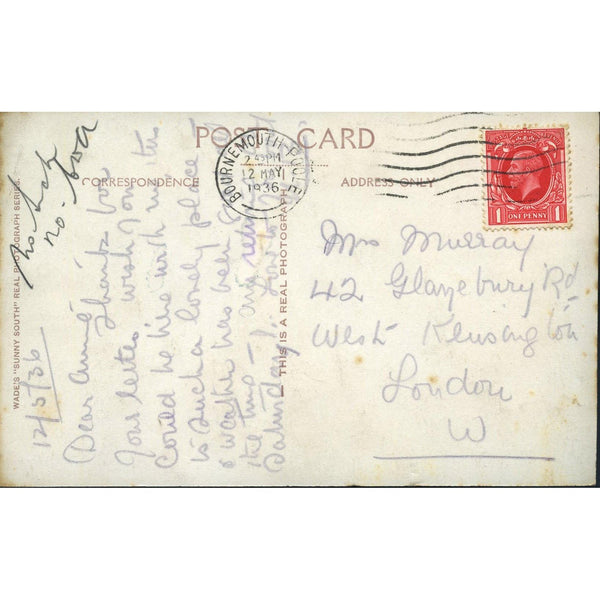 POST CARD
CORRESPONDENCE
ADDRESS ONLY
BOURNEMOUTH-POOLE
2 45 PM
12 MAY
1936
ONE PENNY
1 1
WADE'S "SUNNY SOUTH" REAL PHOTOGRAPH SERIES.
THIS IS A REAL PHOTOGRAPH
12/5/36
Dear Annie Thanks for
your letter wish you
could be here with me this
is such a lonely place
& weather has been
the
Saturday
no.
Mrs Murray
42 Glazebury Rd
West Kensington
London
W